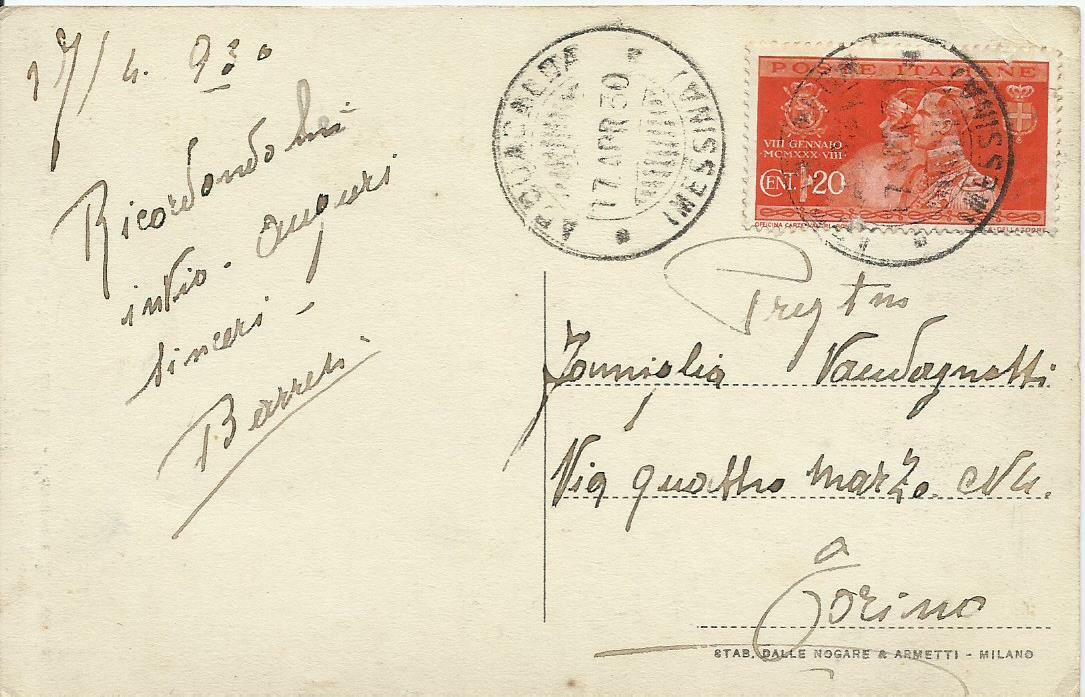 17/4. 930
Ricordandomi
invio - auguri
sinceri -
Barreti -
ACQUACALDA
(MESSINA)
17 APR 30
POSTE ITALIANE
VIII GENNAIO
MCMXXX·VIII·
CENT. 20
OFFICINA CARTE
(MESSINA)
Famiglia Vandagnotti
Via quattro marzo. N 4.
a
Torino
STAB. DALLE NOGARE & ARMETTI - MILANO